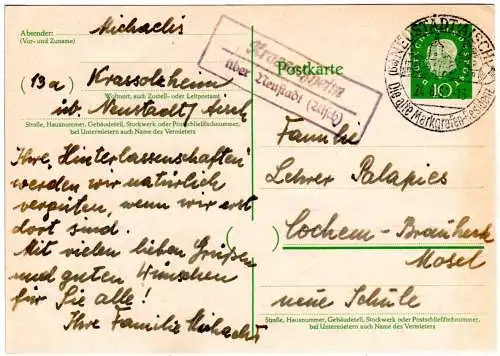 Absender:
(Vor- und Zuname)
Michaelis
(13a) Krassolzheim
Wohnort, auch Zustell- oder Leitpostamt
üb. Neustadt/Aisch
Straße, Hausnummer, Gebäudeteil, Stockwerk oder Postschließfachnummer,
bei Untermietern auch Name des Vermieters
Ihre "Hinterlassenschaften"
werden wir natürlich
vergüten, wenn wir erst
dort sind.
Mit vielen lieben Grüßen
und guten Wünschen
für Sie alle!
Ihre Familie Michaelis
Krassolzheim
über Neustadt (Aisch)
Postkarte
NEUSTADT (AISCH)
DEUTSCHE BUNDESPOST
10
Die alte Markgrafen-Residenz
Familie
Lehrer Palapies
Cochem-Brauheck
Mosel
neue Schule
Straße, Hausnummer, Gebäudeteil, Stockwerk oder Postschließfachnummer,
bei Untermietern auch Name des Vermieters